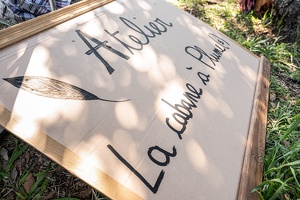 Atelier
La cabane à Plumes